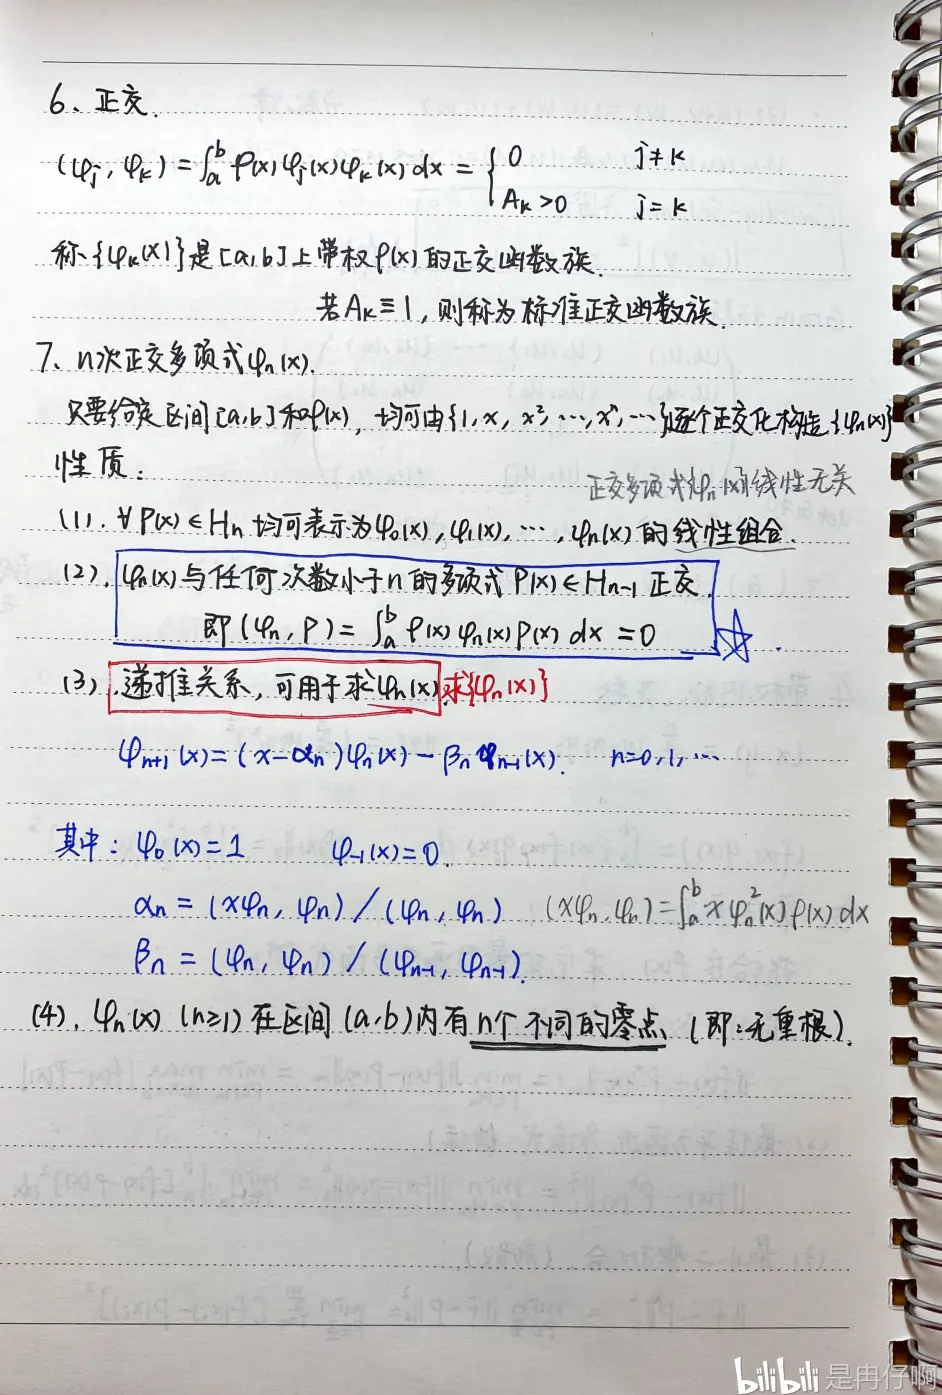 6、正交.
(φj, φk) = ∫ₐᵇ ρ(x) φj(x) φk(x) dx = { 0 j≠k
Ak>0 j=k
称{φk(x)}是[a,b]上带权ρ(x)的正交函数族.
若Ak≡1,则称为标准正交函数族.
7、n次正交多项式φn(x).
只要给定区间[a,b]和ρ(x),均可由{1, x, x², ⋯, xⁿ, ⋯}逐个正交化构造{φn(x)}
性质:
正交多项式{φn(x)}线性无关
(1). ∀P(x)∈Hn 均可表示为φ0(x), φ1(x), ⋯, φn(x)的线性组合.
(2). φn(x)与任何次数小于n的多项式P(x)∈Hn-1 正交.
即(φn, P) = ∫ₐᵇ ρ(x) φn(x) P(x) dx = 0 ☆.
(3). 递推关系,可用于求φn(x). 求{φn(x)}
φn+1(x) = (x-αn)φn(x) - βn φn-1(x). n=0,1,⋯
其中: φ0(x)=1 φ-1(x)=0.
αn = (xφn, φn) / (φn, φn) (xφn, φn) = ∫ₐᵇ xφn²(x) ρ(x) dx
βn = (φn, φn) / (φn-1, φn-1).
(4). φn(x) (n≥1) 在区间(a,b)内有n个不同的零点 (即:无重根).
bilibili 是冉仔啊